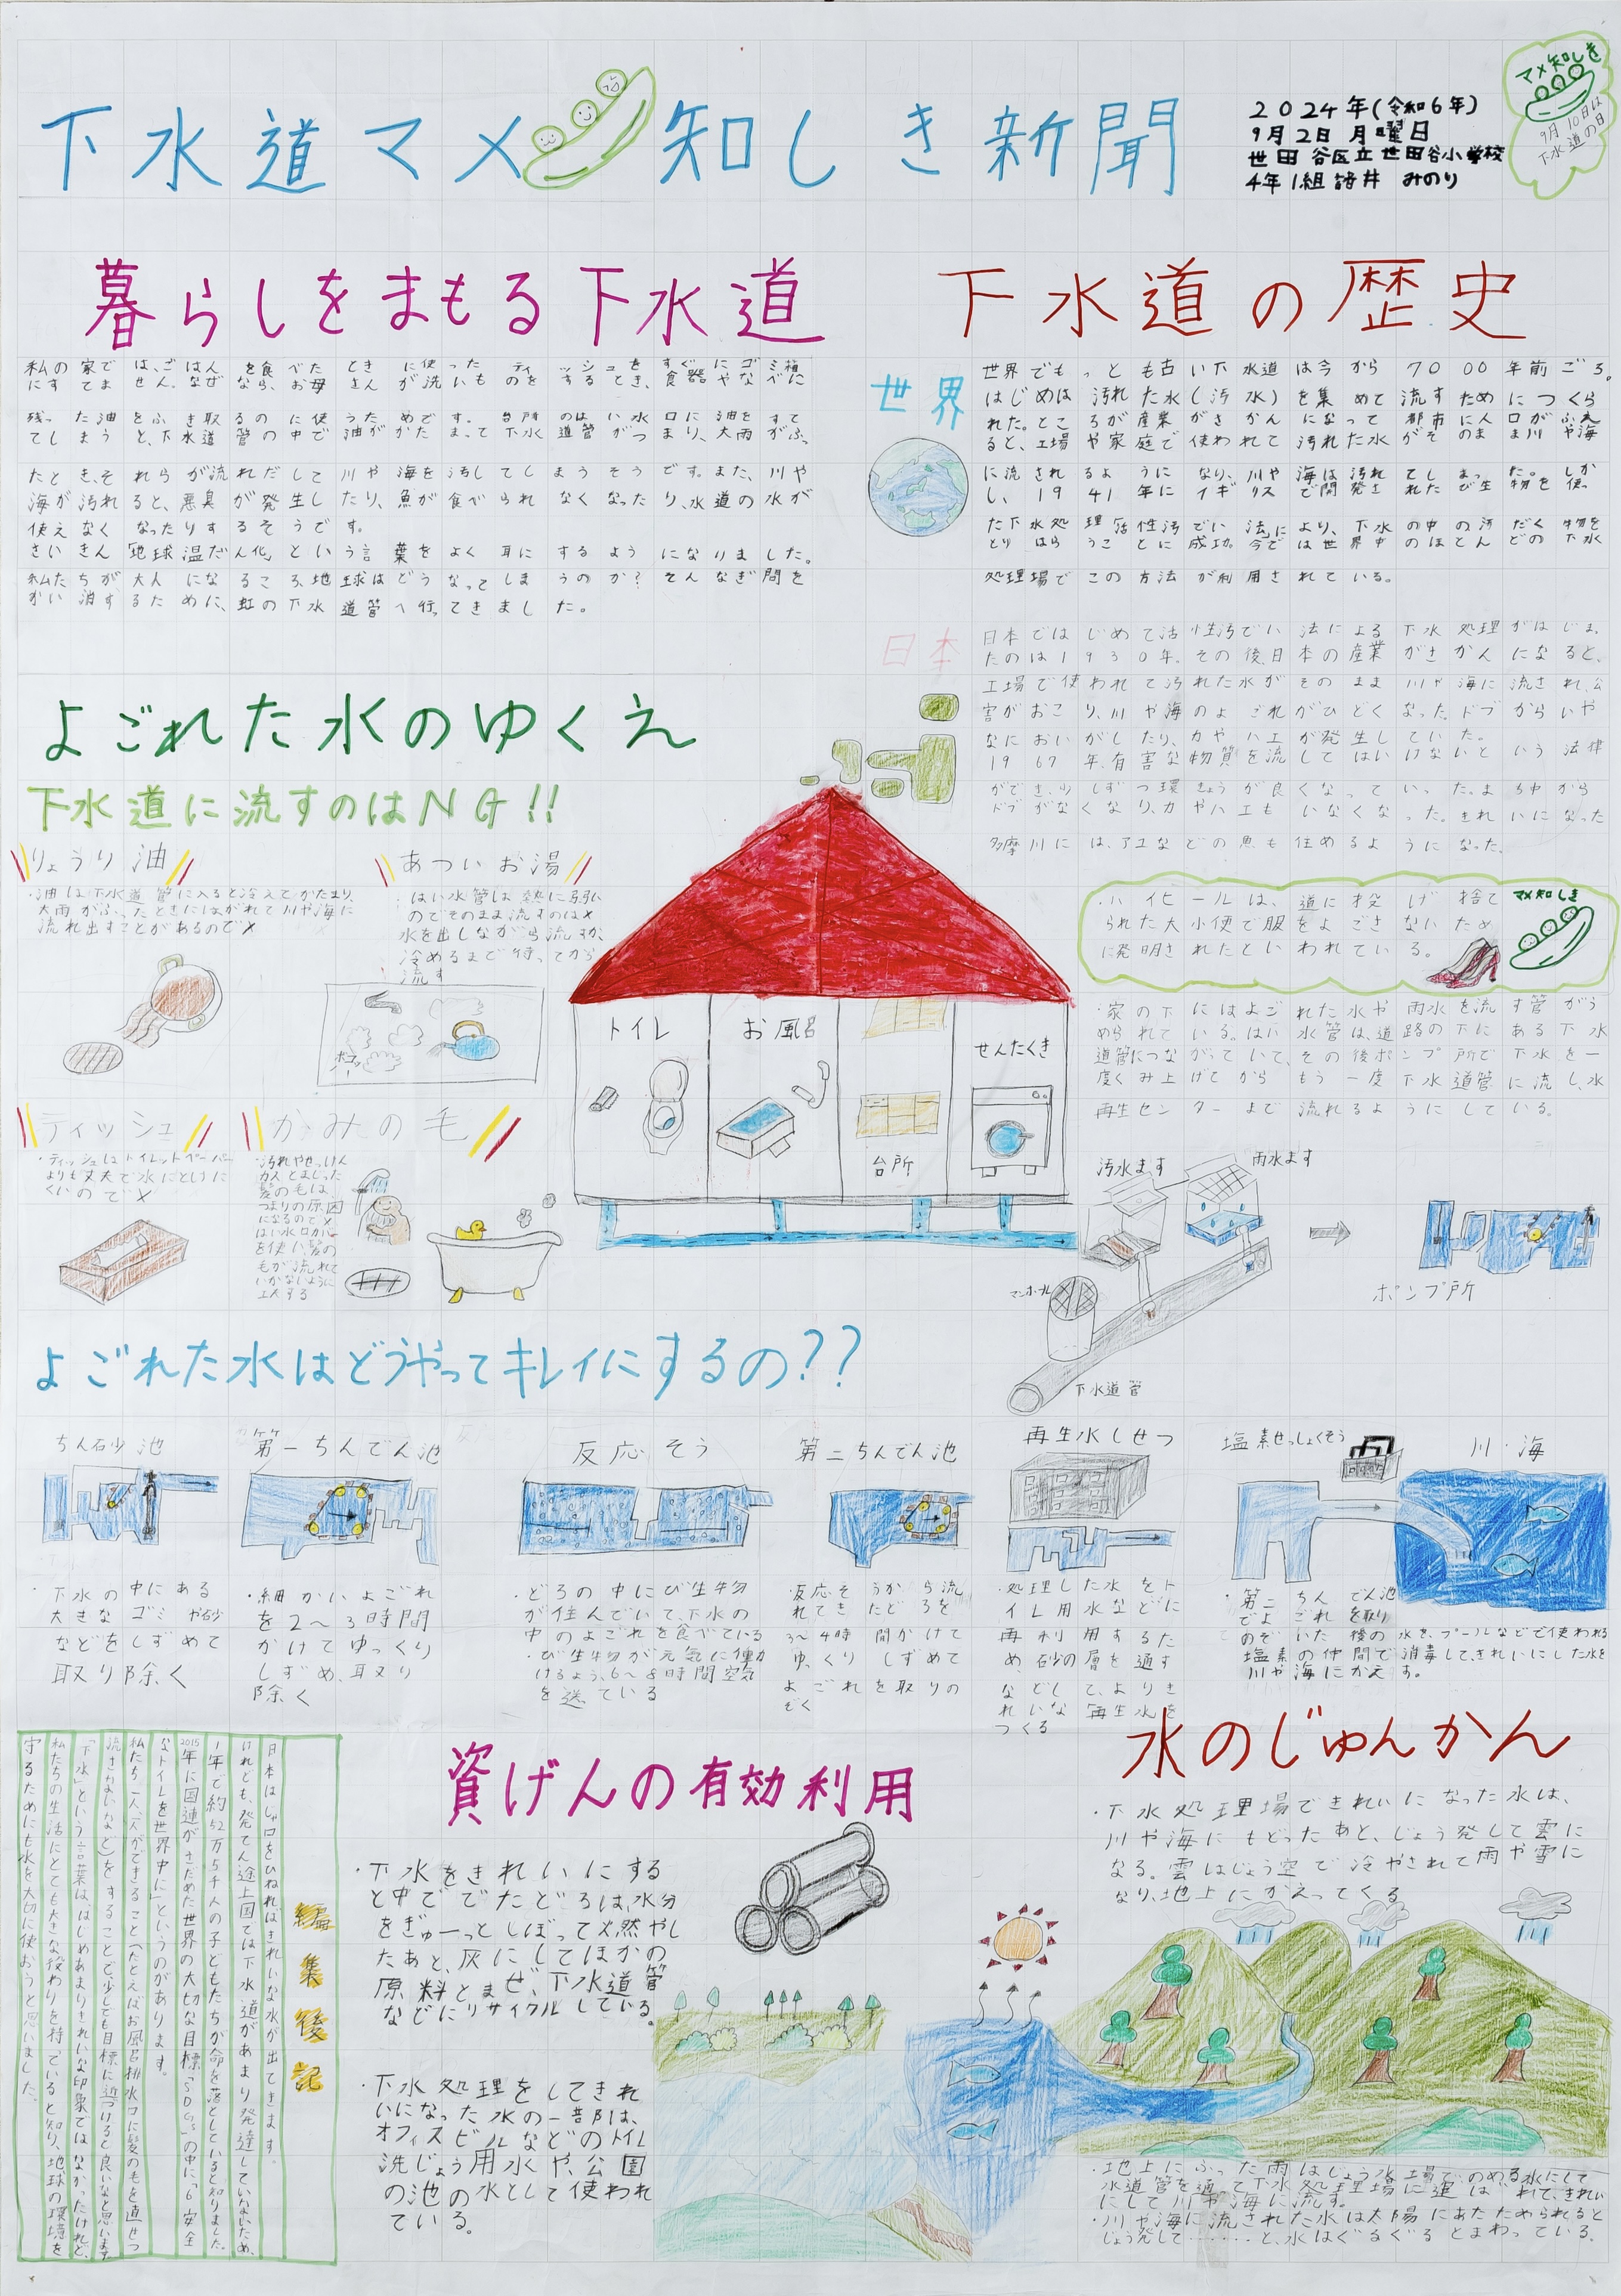 下水道マメ知しき新聞
2024年(令和6年)
9月2日 月曜日
世田谷区立世田谷小学校
4年1組 諸井 みのり
マメ知しき
9月10日は
下水道の日
暮らしをまもる下水道
私の家では、ごはんを食べたときに使ったティッシュをすぐにゴミ箱
にすてません。なぜなら、お母さんが洗いものをするとき、食器やなべに
残った油をふき取るのに使うためです。台所のはい水口に油をすて
てしまうと、下水道管の中で油がかたまって下水道管がつまり、大雨がふっ
たとき、それらが流れだして川や海を汚してしまうそうです。また、川や
海が汚れると、悪臭が発生したり、魚が食べられなくなったり、水道の水が
使えなくなったりするそうです。
さいきん「地球温だん化」という言葉をよく耳にするようになりました。
私たちが大人になるころ、地球はどうなってしまうのか?そんなぎ問を
かい消するために、虹の下水道管へ行ってきました。
下水道の歴史
世界
世界でもっとも古い下水道は今から7000年前ごろ。
はじめは汚れた水(汚水)を集めて流すためにつくら
れた。ところが産業がさかんになって都市に人口がふえ
ると、工場や家庭で使われて汚れた水がそのまま川や海
に流されるようになり、川や海は汚れてしまった。しか
し、1941年にイギリスで開発されたび生物を使っ
た下水処理「活性汚でい法」により、下水の中の汚だく物を
とりはらうことに成功。今では世界中のほとんどの下水
処理場でこの方法が利用されている。
日本
日本ではじめて活性汚でい法による下水処理がはじまっ
たのは1930年。その後、日本の産業がさかんになると、
工場で使われて汚れた水がそのまま川や海に流され、公
害がおこり、川や海のよごれがひどくなった。ドブからいや
なにおいがしたり、カやハエが発生していた。
1967年、有害な物質を流してはいけないという法律
ができ、少しずつ環きょうが良くなっていった。まちから
ドブがなくなり、カやハエもいなくなった。きれいになった
多摩川には、アユなどの魚も住めるようになった。
・ハイヒールは、道に投げ捨て
られた大小便で服をよごさないため
に発明されたといわれている。
マメ知しき
よごれた水のゆくえ
下水道に流すのはNG!!
りょうり油
・油は下水道管に入ると冷えてかたまり、
大雨がふったときにはがれて川や海に
流れ出すことがあるので✕
あついお湯
・はい水管は熱に弱い
のでそのまま流すのは✕
水を出しながら流すか、
冷めるまで待ってから
流す
ティッシュ
・ティッシュはトイレットペーパー
よりも丈夫で水にとけに
くいので✕
かみの毛
・汚れやせっけん
カスとまじった
髪の毛は
つまりの原因
になるので✕
はい水口カバー
を使い、髪の
毛が流れて
いかないように
工夫する
トイレ
お風呂
台所
せんたくき
・家の下にはよごれた水や雨水を流す管がう
められている。はい水管は、道路の下にある下水
道管につながっていて、その後ポンプ所で下水を一
度くみ上げてからもう一度下水道管に流し、水
再生センターまで流れるようにしている。
汚水ます
雨水ます
マンホール
下水道管
ポンプ所
よごれた水はどうやってキレイにするの??
ちん砂池
・下水の中にある
大きなゴミや砂
などをしずめて
取り除く
第一ちんでん池
・細かいよごれ
を2〜3時間
かけてゆっくり
しずめ、取り
除く
反応そう
・どろの中にび生物
が住んでいて、下水の
中のよごれを食べている
・び生物が元気に働
けるよう、6〜8時間空気
を送っている
第二ちんでん池
・反応そうから流
れてきたどろを
3〜4時間かけて
ゆっくりしずめて
よごれを取りの
ぞく
再生水しせつ
・処理した水をト
イレ用水などに
再利用するた
め、砂の層を通す
などして、よりき
れいな再生水を
つくる
塩素せっしょくそう
川・海
・第二ちんでん池
でよごれを取り
のぞいた後の水を、プールなどで使われる
塩素の仲間で消毒して、きれいにした水を
川や海にかえす。
編集後記
日本はじゃ口をひねればきれいな水が出てきます。
けれども、発てん途上国では下水道があまり発達していないため、
1年で約52万5千人の子どもたちが命を落としていると知りました。
2015年に国連がさだめた世界の大切な目標「SDGs」の中に「6 安全
なトイレを世界中に」というのがあります。
私たち一人一人ができること(たとえばお風呂排水口に髪の毛を直せつ
流さないなど)をすることで少しでも目標に近づけると良いなと思います。
「下水」という言葉は、はじめあまりきれいな印象ではなかったけれど、
私たちの生活にとても大きな役わりを持っていると知り、地球の環境を
守るためにも水を大切に使おうと思いました。
資げんの有効利用
・下水をきれいにする
と中ででたどろは、水分
をぎゅーっとしぼって燃やし
たあと、灰にしてほかの
原料とまぜ、下水道管
などにリサイクルしている。
・下水処理をしてきれ
いになった水の一部は、
オフィスビルなどのトイレ
洗じょう用水や、公園
の池の水として使われ
ている。
水のじゅんかん
・下水処理場できれいになった水は、
川や海にもどったあと、じょう発して雲に
なる。雲はじょう空で冷やされて雨や雪に
なり、地上にかえってくる
・地上にふった雨はじょう水場でのめる水にして
水道管を通って下水処理場に運ばれて、きれい
にして川や海に流す。
・川や海に流された水は太陽にあたためられると
じょう発して………と、水はぐるぐるとまわっている。